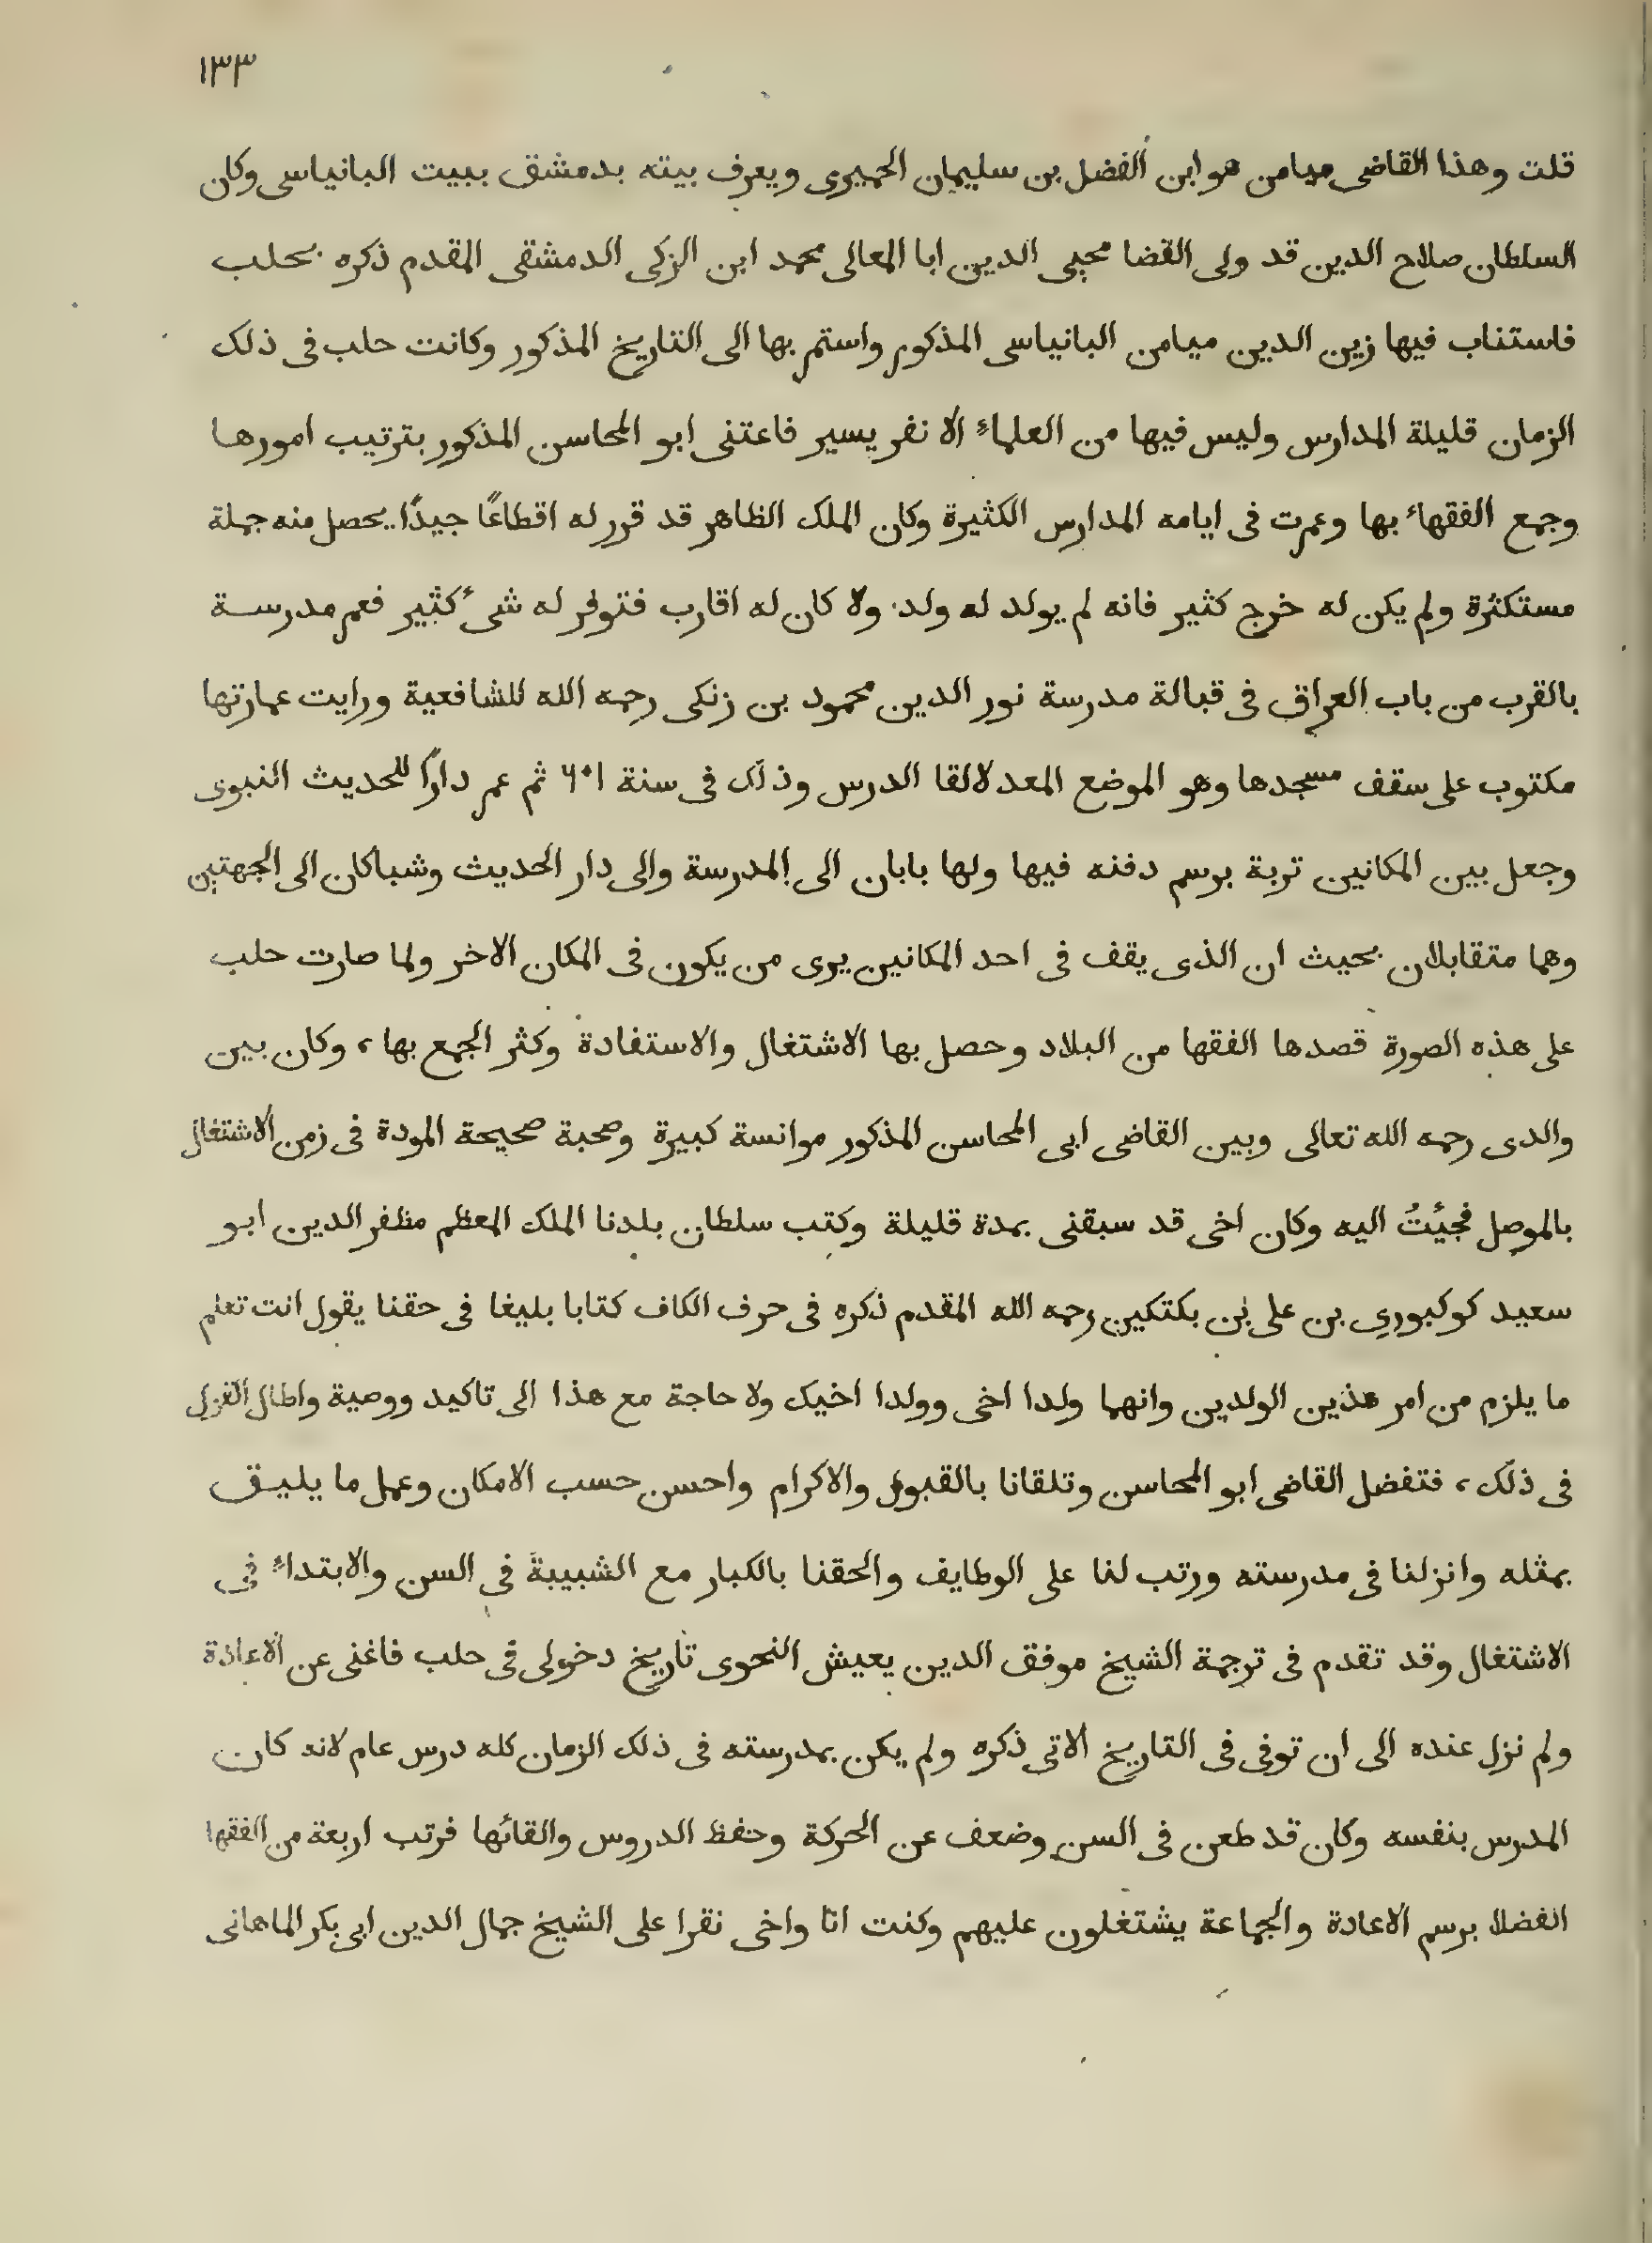 ١٣٣
قلت وهذا القاضى ميامن هو ابن الفضل بن سليمان الحميرى ويعرف بيته بدمشق ببيت البانياسى وكان
السلطان صلاح الدين قد ولى القضا محيى الدين ابا المعالى محمد ابن الزكى الدمشقى المقدم ذكره بحلب
فاستناب فيها زين الدين ميامن البانياسى المذكور واستمر بها الى التاريخ المذكور وكانت حلب فى ذلك
الزمان قليلة المدارس وليس فيها من العلماءِ الا نفر يسير فاعتنى ابو المحاسن المذكور بترتيب امورها
وجمع الفقهاءُ بها وعمرت فى ايامه المدارس الكثيرة وكان الملك الظاهر قد قرر له اقطاعًا جيدًا يحصل منه جملة
مستكثرة ولم يكن له خرج كثير فانه لم يولد له ولد ولا كان له اقارب فتوفر له شىء كثير فعمر مدرسة
بالقرب من باب العراق فى قبالة مدرسة نور الدين محمود بن زنكى رحمه الله للشافعية ورايت عمارتها
مكتوب على سقف مسجدها وهو الموضع المعد لالقا الدرس وذلك فى سنة ٦٠١ ثم عمر دارًا للحديث النبوى
وجعل بين المكانين تربة برسم دفنه فيها ولها بابان الى المدرسة والى دار الحديث وشباكان الى الجهتين
وهما متقابلان بحيث ان الذى يقف فى احد المكانين يرى من يكون فى المكان الاخر ولما صارت حلب
على هذه الصورة قصدها الفقها من البلاد وحصل بها الاشتغال والاستفادة وكثر الجمع بها، وكان بين
والدى رحمه الله تعالى وبين القاضى ابى المحاسن المذكور موانسة كبيرة وصحبة صحيحة المودة فى زمن الاشتغال
بالموصل فجيئتُ اليه وكان اخى قد سبقنى بمدة قليلة وكتب سلطان بلدنا الملك المعظم مظفر الدين ابو
سعيد كوكبورى بن على بن بكتكين رحمه الله المقدم ذكره فى حرف الكاف كتابا بليغا فى حقنا يقول انت تعلم
ما يلزم من امر هذين الولدين وانهما ولدا اخى وولدا اخيك ولا حاجة مع هذا الى تاكيد ووصية واطال القول
فى ذلك، فتفضل القاضى ابو المحاسن وتلقانا بالقبول والاكرام واحسن حسب الامكان وعمل ما يليق
بمثله وانزلنا فى مدرسته ورتب لنا على الوظايف والحقنا بالكبار مع الشبيبة فى السن والابتداءِ فى
الاشتغال وقد تقدم فى ترجمة الشيخ موفق الدين يعيش النحوى تاريخ دخولى فى حلب فاغنى عن الاعادة
ولم نزل عنده الى ان توفى فى التاريخ الاتى ذكره ولم يكن بمدرسته فى ذلك الزمان كله درس عام لانه كان
المدرس بنفسه وكان قد طعن فى السن وضعف عن الحركة وحفظ الدروس والقائها فرتب اربعة من الفقها
الفضلا برسم الاعادة والجماعة يشتغلون عليهم وكنت انا واخى نقرا على الشيخ جمال الدين ابى بكر الماهانى